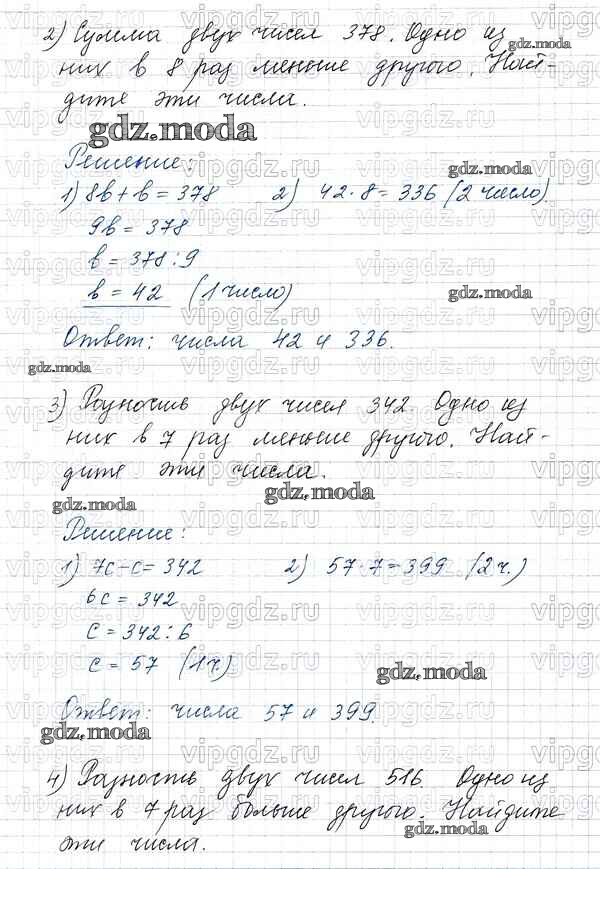 2) Сумма двух чисел 378. Одно из
них в 8 раз меньше другого. Най-
дите эти числа.
gdz.moda
Решение:
1) 8b + b = 378 2) 42·8 = 336 (2 число)
9b = 378
b = 378:9
b = 42 (1 число)
Ответ: числа 42 и 336.
3) Разность двух чисел 342. Одно из
них в 7 раз меньше другого. Най-
дите эти числа.
gdz.moda
Решение:
1) 7c - c = 342 2) 57·7 = 399 (2 ч.)
6c = 342
c = 342:6
c = 57 (1 ч.)
gdz.moda
Ответ: числа 57 и 399.
gdz.moda
4) Разность двух чисел 516. Одно из
них в 7 раз больше другого. Найдите
эти числа.
gdz.moda
vipgdz.ru